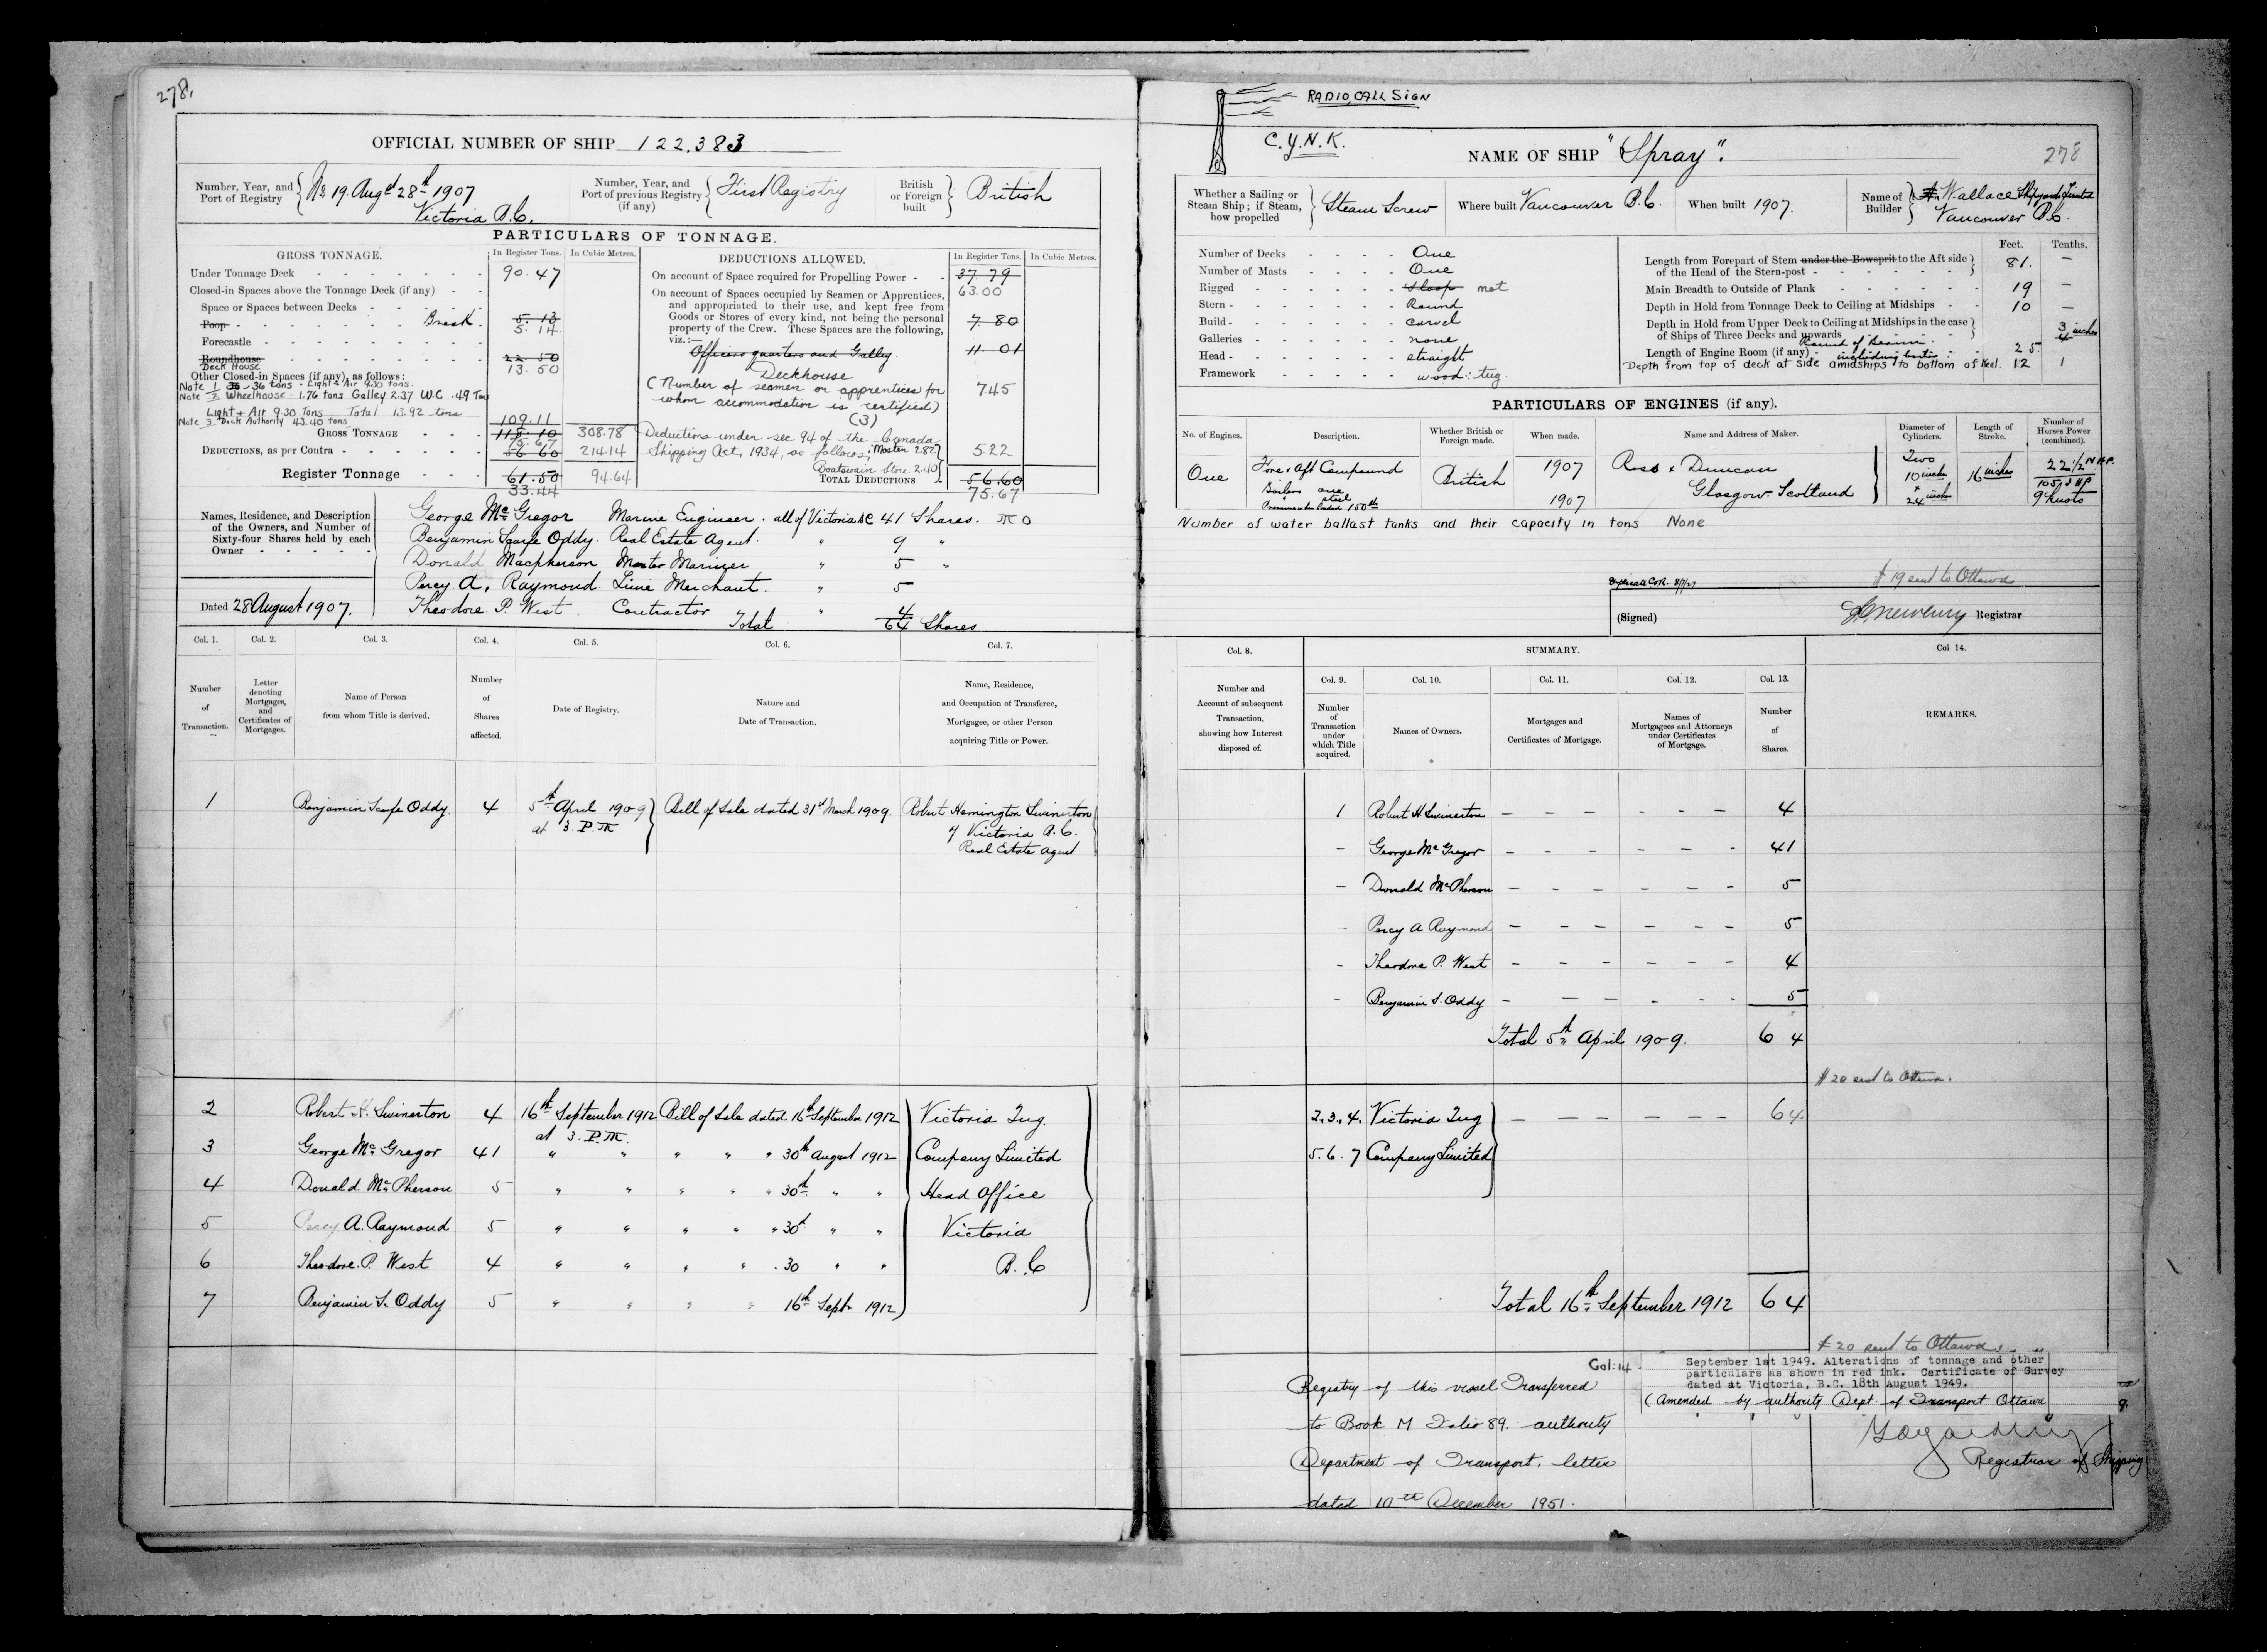 278.
OFFICIAL NUMBER OF SHIP 122,383
Number, Year, and Port of Registry No 19. Augst 28th 1907 Victoria B.C.
Number, Year, and Port of previous Registry (if any) First Registry
British or Foreign built British
PARTICULARS OF TONNAGE.
GROSS TONNAGE. In Register Tons. In Cubic Metres.
Under Tonnage Deck 90.47
Closed-in Spaces above the Tonnage Deck (if any)
Space or Spaces between Decks
Poop Break 5.13
5.14
Forecastle
Roundhouse 22.50
Deck House 13.50
Other Closed-in Spaces (if any), as follows:
Note 1 36 - 36 tons - Light & Air 9.30 tons.
Note 2 Wheelhouse - 1.76 tons Galley 2.37 W.C .49 Tons
Light & Air 9.30 Tons Total 13.92 tons
Note 3 Deck Authority 43.40 tons
109.11
GROSS TONNAGE 118.10 308.78
75.67
DEDUCTIONS, as per Contra 56 60 214.14
Register Tonnage 61.50 94.64
33.44
DEDUCTIONS ALLOWED. In Register Tons. In Cubic Metres.
On account of Space required for Propelling Power 37.79
63.00
On account of Spaces occupied by Seamen or Apprentices, and appropriated to their use, and kept free from Goods or Stores of every kind, not being the personal property of the Crew. These Spaces are the following, viz.:— 7 80
Officers quarters and Galley 11 01
Deckhouse
(Number of seamen or apprentices for 745
whom accommodation is certified)
(3)
Deductions under sec 94 of the Canada
Shipping Act, 1934, as follows; Master 2.82 5.22
Boatswain Store 2.40
TOTAL DEDUCTIONS 56.60
75.67
Names, Residence, and Description of the Owners, and Number of Sixty-four Shares held by each Owner
George McGregor Marine Engineer. all of Victoria BC 41 Shares. M O
Benjamin Scarfe Oddy. Real Estate Agent. " 9 "
Donald Macpherson Master Mariner " 5 "
Percy A. Raymond Lime Merchant. " 5
Theodore P. West. Contractor " 4
Total 64 Shares
Dated 28 August 1907.
Col. 1. Col. 2. Col. 3. Col. 4. Col. 5. Col. 6. Col. 7.
Number of Transaction.
Letter denoting Mortgages, and Certificates of Mortgages.
Name of Person from whom Title is derived.
Number of Shares affected.
Date of Registry.
Nature and Date of Transaction.
Name, Residence, and Occupation of Transferee, Mortgagee, or other Person acquiring Title or Power.
1 Benjamin Scarfe Oddy. 4 5th April 1909 Bill of Sale dated 31st March 1909. Robert Hemington Swinerton
at 3. P.M of Victoria B.C.
Real Estate Agent
2 Robert H. Swinerton 4 16th September 1912 Bill of Sale dated 16th September 1912 Victoria Tug
at 3. P.M.
3 George McGregor 41 " " " " " 30th August 1912 Company Limited
4 Donald McPherson 5 " " " " " 30th " " Head Office
5 Percy A. Raymond 5 " " " " " 30th " " Victoria
6 Theodore P. West 4 " " " " " 30 " " B.C
7 Benjamin S. Oddy 5 " " " " 16th Sept 1912
RADIO CALL SIGN
C.Y.N.K.
NAME OF SHIP "Spray".
278
Whether a Sailing or Steam Ship; if Steam, how propelled Steam Screw
Where built Vancouver B.C.
When built 1907.
Name of Builder A. Wallace Shipyards Limited Vancouver B.C.
Number of Decks One
Number of Masts One
Rigged Sloop not
Stern Round
Build carvel
Galleries none
Head straight
Framework wood: tug.
Feet. Tenths.
Length from Forepart of Stem under the Bowsprit to the Aft side of the Head of the Stern-post 81. —
Main Breadth to Outside of Plank 19 —
Depth in Hold from Tonnage Deck to Ceiling at Midships 10 —
Depth in Hold from Upper Deck to Ceiling at Midships in the case of Ships of Three Decks and upwards
Round of Beam 3 inches
4
Length of Engine Room (if any) including bunkers 25.
Depth from top of deck at side amidships to bottom of Keel. 12 1
PARTICULARS OF ENGINES (if any).
No. of Engines. Description. Whether British or Foreign made. When made. Name and Address of Maker. Diameter of Cylinders. Length of Stroke. Number of Horses Power (combined).
One Fore & Aft Compound British 1907 Ross & Duncan Two 16 inches 22 1/2 N H.P.
Boilers one 10 inches 105 I HP
steel 1907 Glasgow. Scotland & 24 inches 9 Knots
Pressure when loaded 150 lb
Number of water ballast tanks and their capacity in tons None
# 19 sent to Ottawa
(Signed) Registrar
Col. 8. SUMMARY. Col 14.
Number and Account of subsequent Transaction, showing how Interest disposed of.
Col. 9. Col. 10. Col. 11. Col. 12. Col. 13.
Number of Transaction under which Title acquired.
Names of Owners.
Mortgages and Certificates of Mortgage.
Names of Mortgagees and Attorneys under Certificates of Mortgage.
Number of Shares.
REMARKS.
1 Robert H Swinerton — — — — — — 4
- George McGregor — — — — — - 41
- Donald McPherson — - - — — - 5
Percy A Raymond — — — — — — 5
- Theodore P. West — — — — — — 4
- Benjamin S. Oddy - — — - - - 5
Total 5th April 1909. 64
# 20 sent to Ottawa.
2.3.4. Victoria Tug — — — — — — 64.
5.6.7 Company Limited
Total 16th September 1912 64
# 20 sent to Ottawa.
Col: 14
September 1st 1949. Alterations of tonnage and other
particulars as shown in red ink. Certificate of Survey
dated at Victoria, B.C. 18th August 1949.
(Amended by authority Dept. of Transport Ottawa
Registrar of Shipping
Registry of this vessel Transferred
to Book M Folio 89. authority
Department of Transport, letter
dated 10th December 1951.